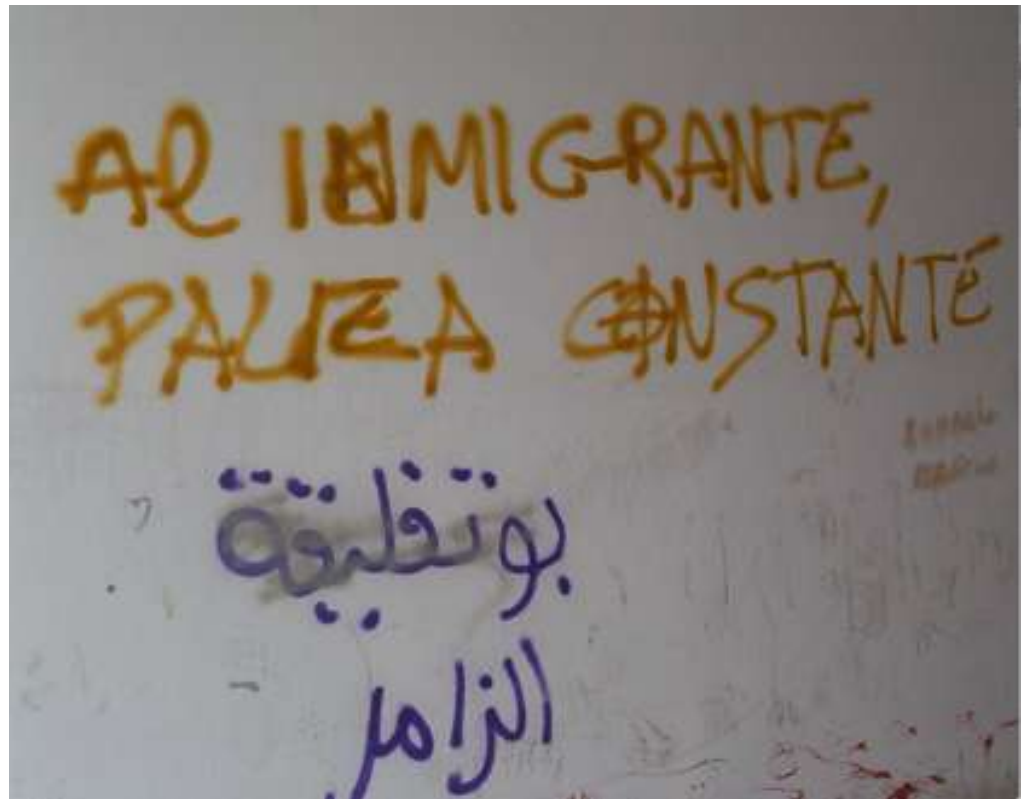 Al INMIGRANTE,
PALIZA CONSTANTE
بوتفليقة
الزامل